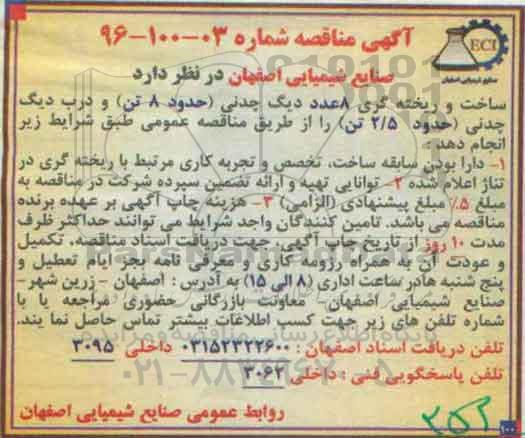 آگهی مناقصه شماره ۰۳-۱۰۰-۹۶
ECI
صنایع شیمیایی اصفهان
صنایع شیمیایی اصفهان در نظر دارد
ساخت و ریخته گری ۸عدد دیگ چدنی (حدود ۸ تن) و درب دیگ
چدنی (حدود ۲/۵ تن) را از طریق مناقصه عمومی طبق شرایط زیر
انجام دهد :
۱- دارا بودن سابقه ساخت، تخصص و تجربه کاری مرتبط با ریخته گری در
تناژ اعلام شده ۲- توانایی تهیه و ارائه تضمین سپرده شرکت در مناقصه به
مبلغ ۵٪ مبلغ پیشنهادی (الزامی) ۳- هزینه چاپ آگهی بر عهده برنده
مناقصه می باشد. تامین کنندگان واجد شرایط می توانند حداکثر ظرف
مدت ۱۰ روز از تاریخ چاپ آگهی، جهت دریافت اسناد مناقصه، تکمیل
و عودت آن به همراه رزومه کاری و معرفی نامه بجز ایام تعطیل و
پنج شنبه هادر ساعت اداری (۸ الی ۱۵) به آدرس : اصفهان - زرین شهر-
صنایع شیمیایی اصفهان- معاونت بازرگانی حضوری مراجعه یا با
شماره تلفن های زیر جهت کسب اطلاعات بیشتر تماس حاصل نما یند.
تلفن دریافت اسناد اصفهان : ۰۳۱۵۲۲۲۲۶۰۰ داخلی ۳۰۹۵
تلفن پاسخگویی فنی : داخلی ۳۰۶۲
روابط عمومی صنایع شیمیایی اصفهان
۱۰۰